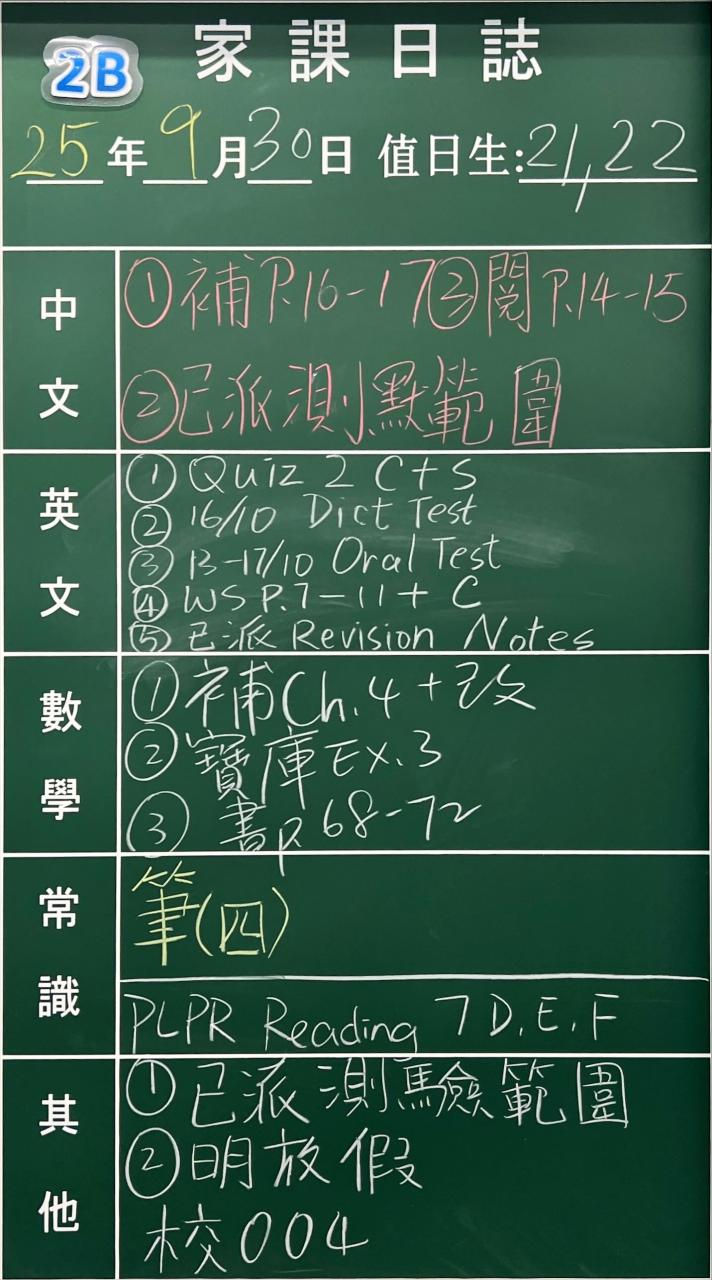 2B 家課日誌
25年9月30日 值日生:21,22
中文
①補P.16-17③閱P.14-15
②已派測默範圍
英文
① Quiz 2 C+S
② 16/10 Dict Test
③ 13-17/10 Oral Test
④ WS P.7-11+C
⑤ 已派 Revision Notes
數學
①補Ch.4+改
②寶庫Ex.3
③書P.68-72
常識
筆(四)
PLPR Reading 7 D.E.F
其他
①已派測驗範圍
②明放假
校004